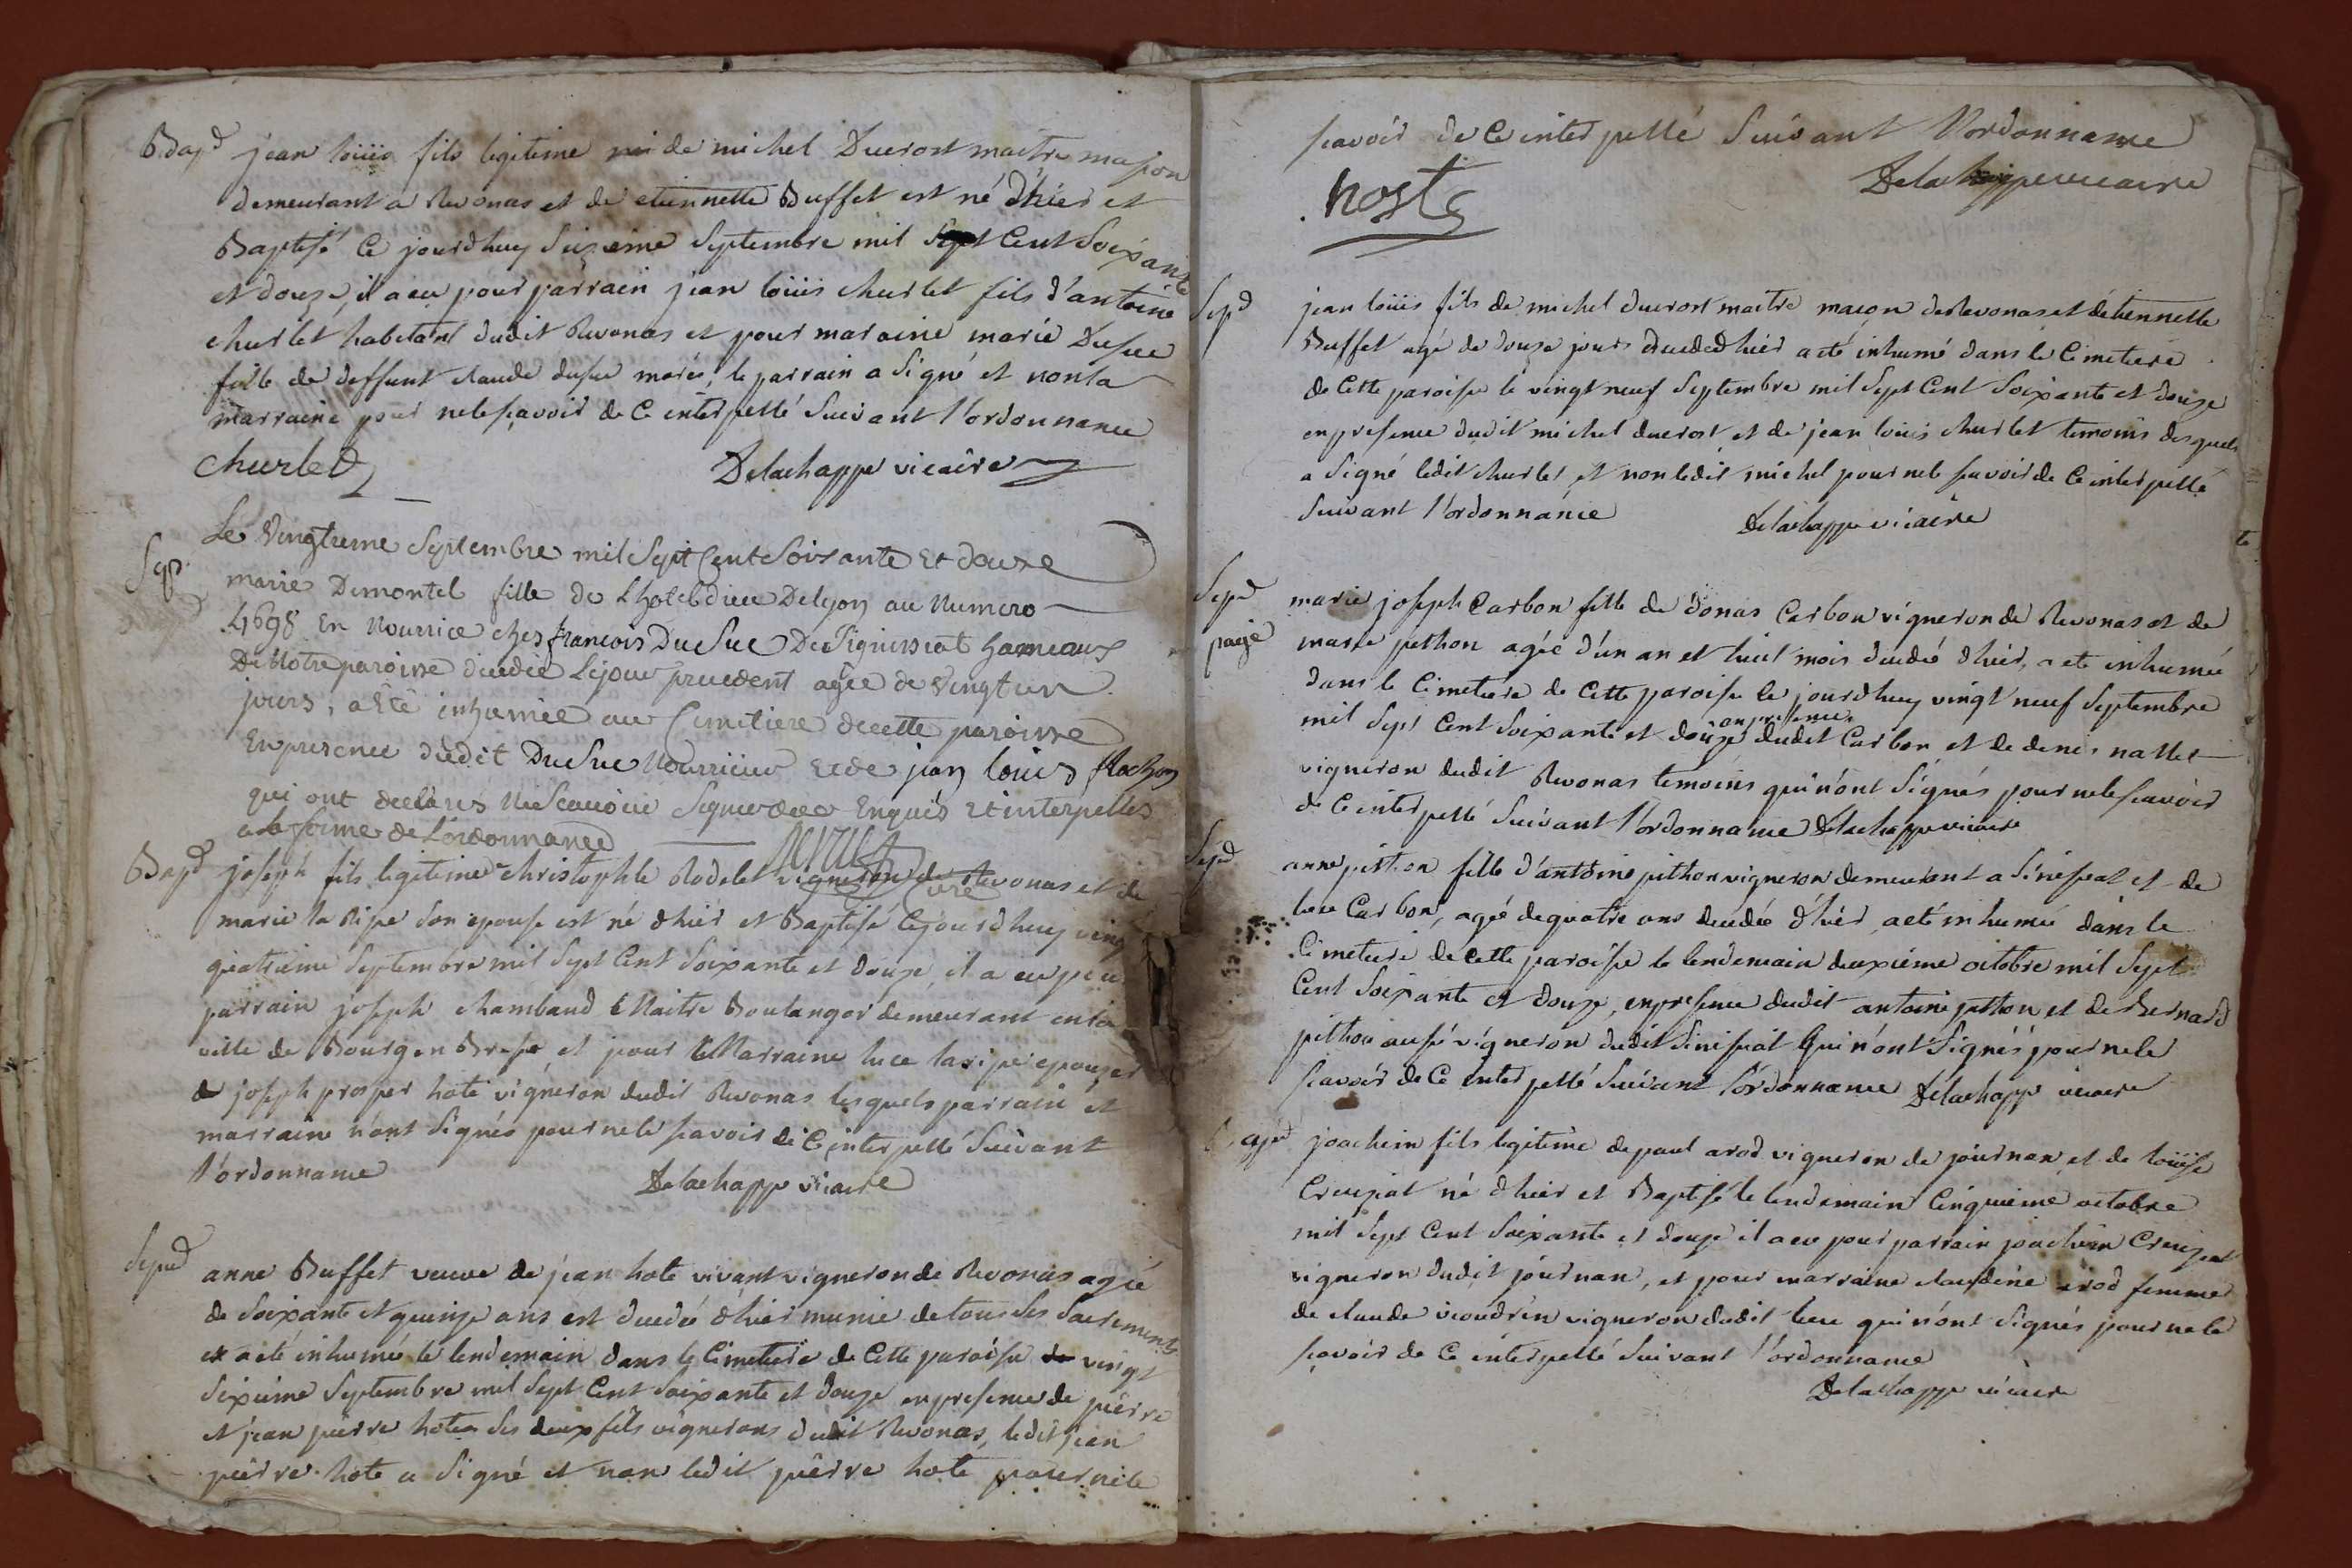 Bapd jean loüis fils legitime de michel Ducrost maitre mason
demeurant a Revonas et de etiennette Buffet est né d'hier et
Baptisé Ce jourdhuy seizeime Septembre mil Sept Cent Soixante
et douze, il a eu pour parrain jean loüis churlet fils d'antoine
churlet habitant dudit Revonas et pour maraine marie Dusuc
fille de deffunt claude dusuc marée, le parrain a Signé et non la
marraine pour ne le sçavoir de Ce interpellé Suivant l'ordonnance
churlet Delachappe vicaire
Sepd
Le Vingtieme Septembre mil Sept Cent Soixante Et douze
marie Demontel fille de Lhoteldieu Delyon au Numero
4698 En Nourrice chez francois DuSuc De Signissiat hameaux
De Notre paroisse decedée Lejour precedent agée de Vingt un
jours, a Eté inhumée au Cimetiere decette paroisse
En presence dudit DuSuc Nourricier et de jean louis flochon
qui ont declarés Ne Scavoir Signer dece Enquis et interpelles
a la forme de L'ordonnance
curé
Bapd joseph fils legitime christophle Rodelet vigneron de Revonas et de
marie la Ripe son epouse est né d'hier et Baptisé Cejourdhuy vingt
quatrieme Septembre mil Sept Cent Soixante et douze, il a eu pour
parrain joseph chambaud Maitre Boulanger demeurant en la
ville de Bourg en Bresse et pour Marraine luce laripe epouse
de joseph prosper hote vigneron dudit Revonas lesquels parrain et
marraine n'ont Signés pour ne le sçavoir de Ce interpellé Suivant
l'ordonnance Delachappe vicaire
Sepd anne Buffet veuve de jean hote vivant vigneron de Revonas agée
de Soixante et quinze ans est decedée d'hier munie de tous Ses Sacrements
et a eté inhumée le lendemain dans le Cimetiere de Cette paroisse vingt
Sixieme Septembre mil Sept Cent Soixante et douze en presence de pierre
et jean pierre hote Ses deux fils vignerons dudit Revonas, ledit jean
pierre hote a Signé et non ledit pierre hote pour ne le
scavoir de Ce interpellé Suivant l'ordonnance
Delachappe vicaire
hoste
Sepd jean loüis fils de michel ducrost maitre maçon de Revonas et d'etiennette
Buffet agé de douze jours decedé d'hier a eté inhumé dans le Cimetiere
de Cette paroisse le vingt neuf Septembre mil Sept Cent Soixante et douze
en presence dudit michel ducrost et de jean loüis churlet temoins desquels
a Signé ledit churlet et non ledit michel pour ne le sçavoir de Ce interpellé
Suivant l'ordonnance Delachappe vicaire
Sepd marie joseph Carbon fille de donas Carbon vigneron de Revonas et de
payé marie pethon agée d'un an et huit mois decedée d'hier, a eté inhumée
dans le Cimetiere de Cette paroisse le jourdhuy vingt neuf Septembre
en presence
mil Sept Cent Soixante et douze dudit Carbon et de denis nallet
vigneron dudit Revonas temoins qui n'ont Signés pour ne le sçavoir
de Ce interpellé Suivant l'ordonnance Delachappe vicaire
Sepd anne pithon fille d'antoine pithon vigneron demeurant a Sinissiat et de
luce Carbon, agée de quatre ans decedée d'hier, a eté inhumée dans le
Cimetiere de Cette paroisse le lendemain deuxieme octobre mil Sept
Cent Soixante et douze, en presence dudit antoine pithon et de Bernard
pithon aussi vigneron dudit Sinissiat qui n'ont Signés pour ne le
scavoir de Ce interpellé Suivant l'ordonnance Delachappe vicaire
Bapd joachim fils legitime de paul arod vigneron de journan et de loüise
Creuziat né d'hier et Baptisé le lendemain Cinquieme octobre
mil Sept Cent Soixante et douze il a eu pour parrain joachim Creuziat
vigneron dudit journan, et pour marraine claudine arod femme
de claude vioudrin vigneron dudit lieu qui n'ont Signés pour ne le
sçavoir de Ce interpellé Suivant l'ordonnance
Delachappe vicaire